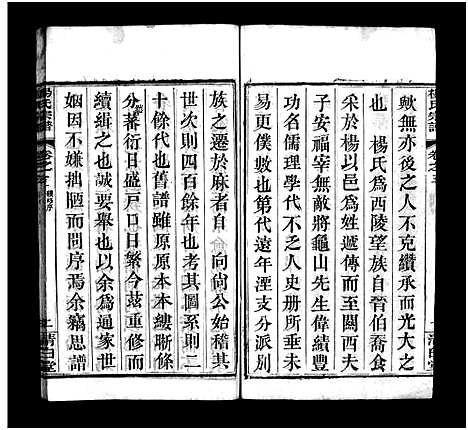 楊氏宗譜
卷之首
清白堂
歟無亦後之人不克纘承而光大之
也 楊氏爲西陵望族自 伯喬食
采於楊以邑爲姓遞傳而至關西夫
子安福宰無敵將龜山先生偉績豐
功名儒理學代不乏人史册所垂未
易更僕數也第代遠年湮支分派別
族之遷於麻者自 向尙公始稽其
世次則四百餘年也考其圖系則二
十餘代也舊譜雖原原本本縷晰條
分蕃衍日盛戸口日繁今茲重修而
續緝之誠要舉也以余爲通家世
姻因不嫌拙陋而問序焉余竊思譜
楊氏宗譜
卷之首
清白堂